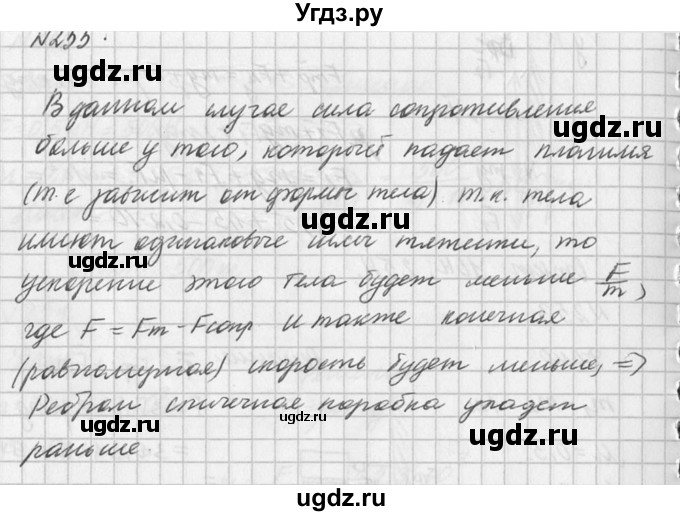 Угдз.ру
N255.
В данном случае сила сопротивления
больше у того, который падает плашмя
(т.е зависит от формы тела) т.к. тела
имеют одинаковые силы тяжести, то
ускорение этого тела будет меньше F/m,
где F = Fт - Fсопр и также конечная
(равномерная) скорость будет меньше, =>
Ребром спичечная коробка упадет
раньше.
ugdz.ru
ugdz.ru
ugdz.ru
ugdz.ru
ugdz.ru
ugdz.ru
ugdz.ru
ugdz.ru